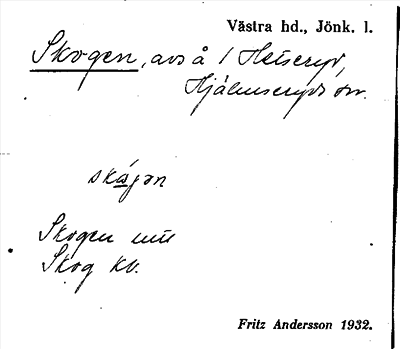 Västra hd., Jönk. l.
Skogen, avs å 1 Heiseryd,
Hjälmseryds sn.
skågən
Skogen mu
Skog kv.
Fritz Andersson 1932.